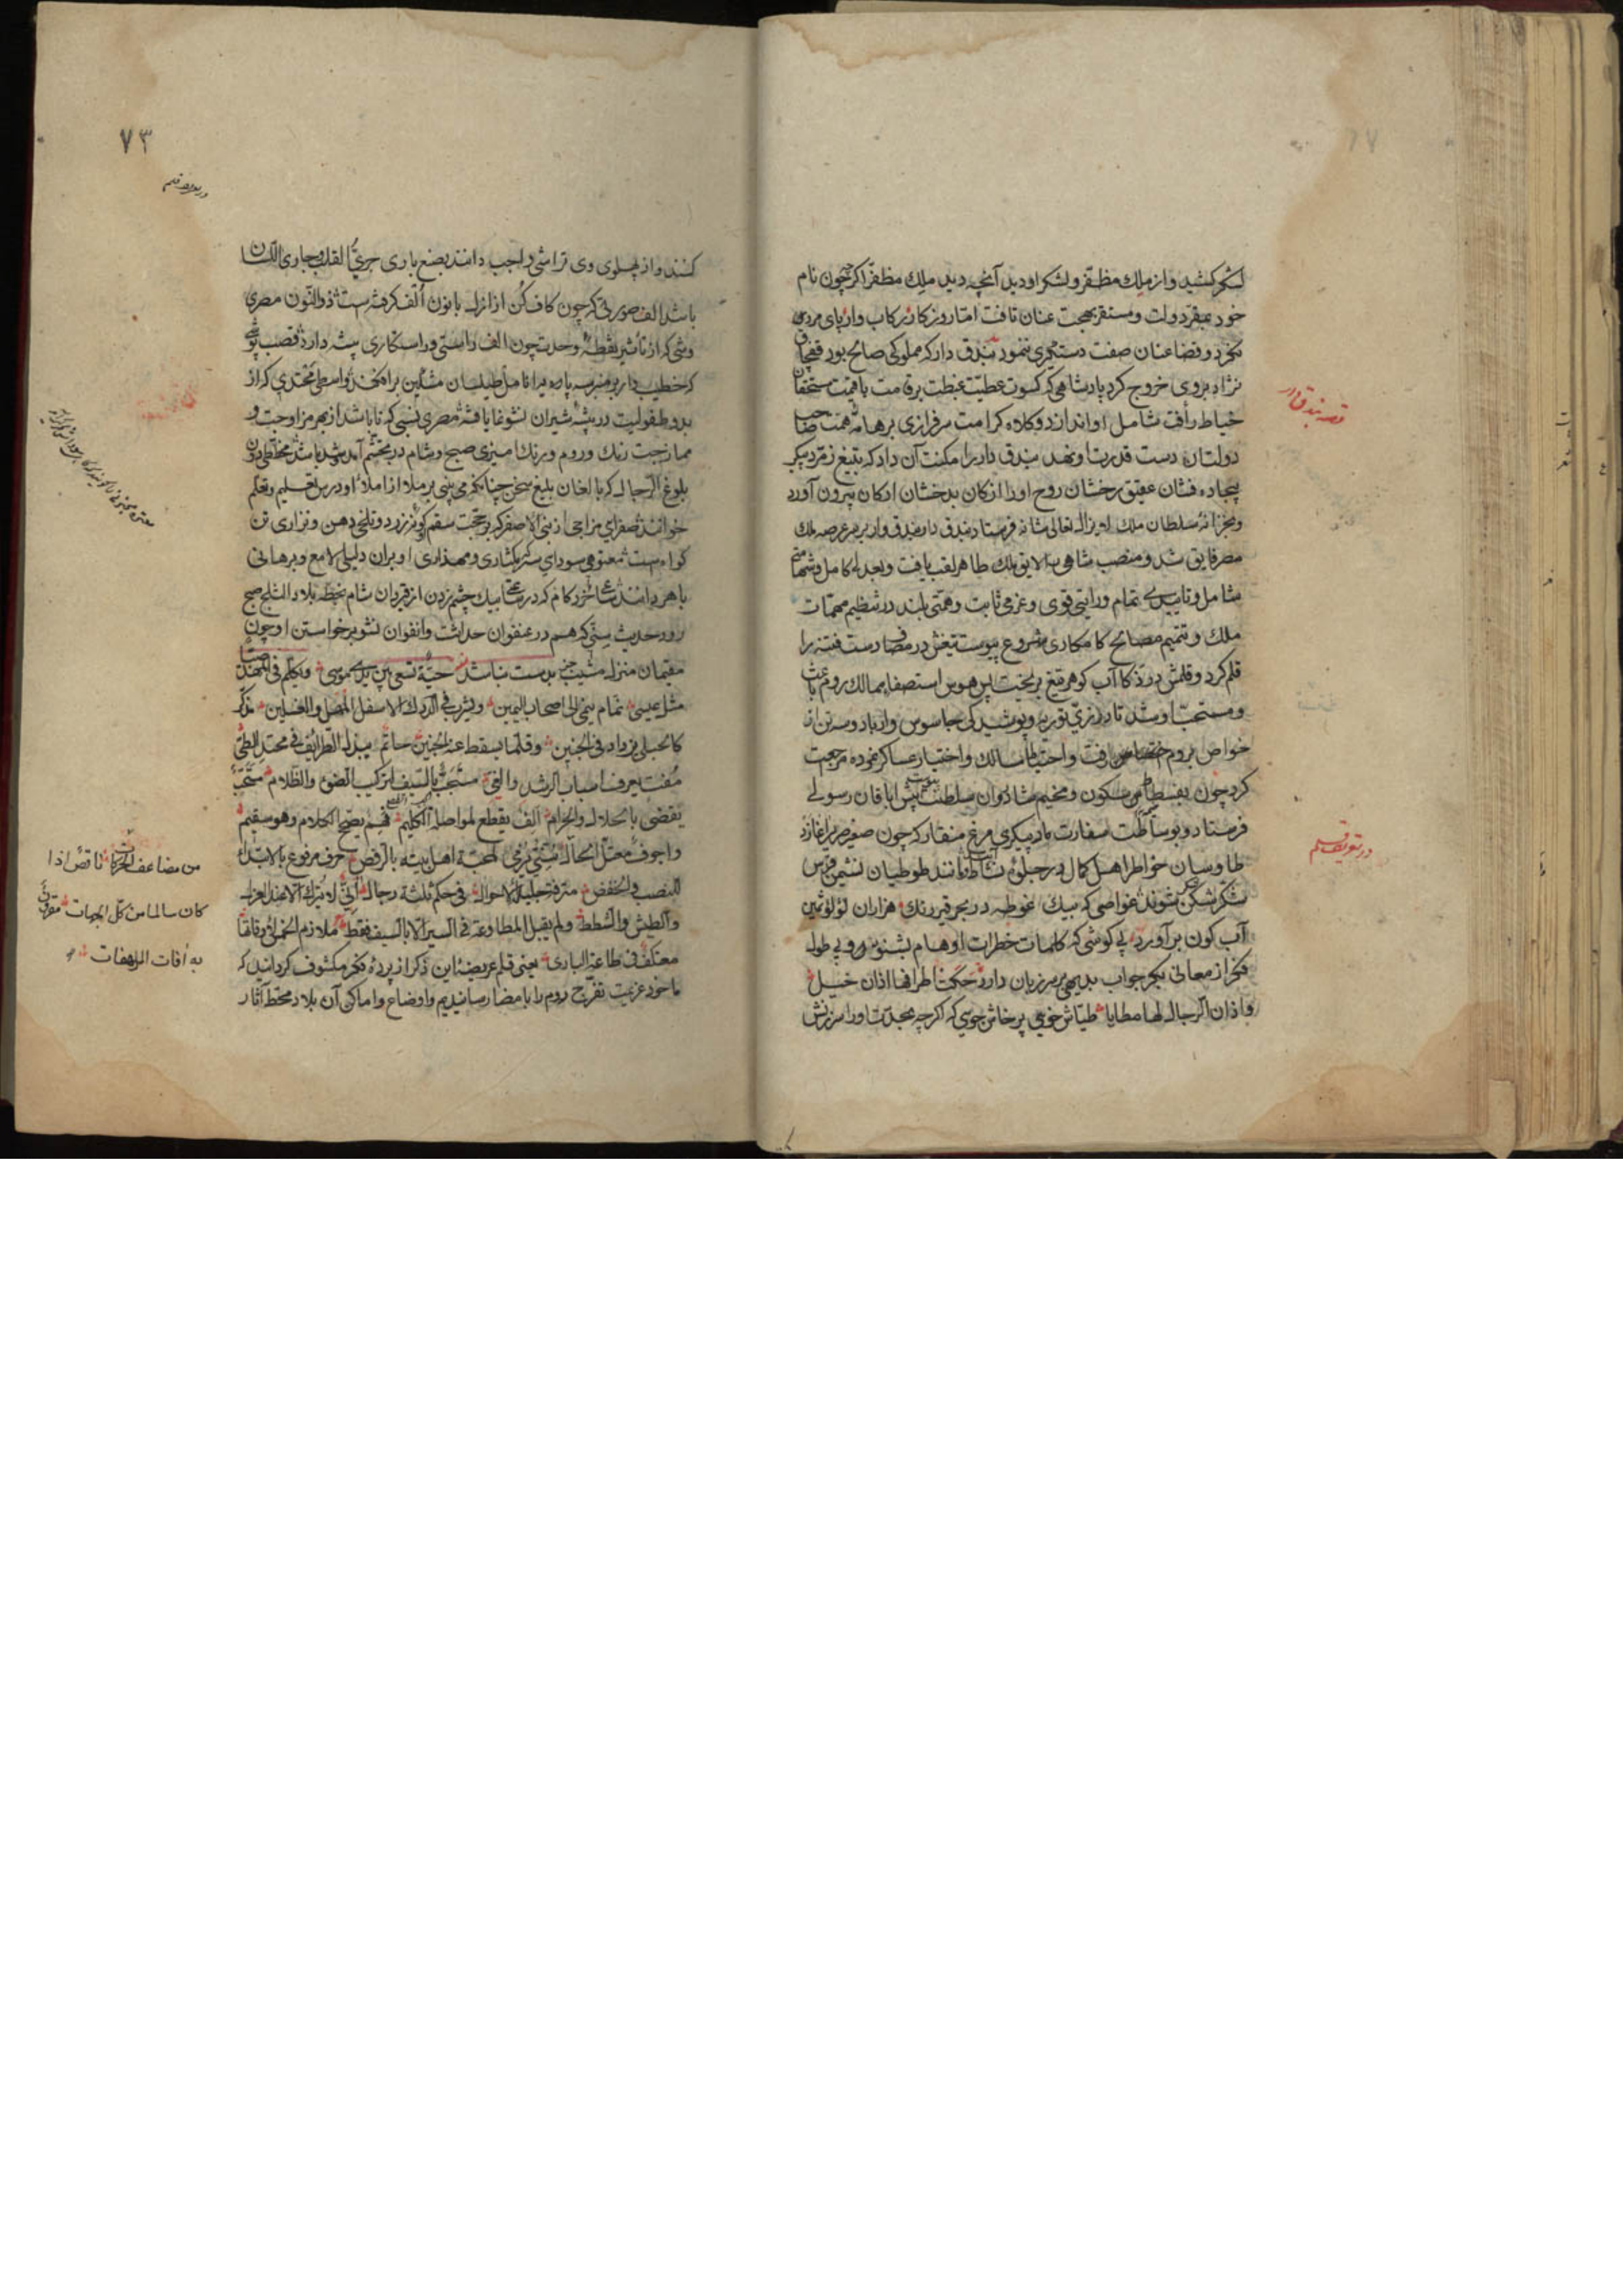 لشکر کشید و از ملک مظفر و لشکر او دید آنچه دید ملک مظفر اگرچه چون نام
خود بمقر دولت و مستقر بهجت عنان تافت اما روزگار رکاب وار پای مردی
نکرد و قضا عنان صفت دستگیری ننمود بندق دار که مملوکی صالح بود قفچاق
نژاد بروی خروج کرد پادشاهی که کسوت عطیت غبطت بر قامت با قیمت مستحقان
خیاط رأفت شامل او اندازد و کلاه کرامت سرفرازی بر هامه همت صاحب
دولتان دست قدرت او نهد بندق دار را مکنت آن داد که بتیغ زمرد پیکر
بیجاده فشان عقیق رخشان روح او را از کان بدخشان ارکان بیرون آورد
و بخزانه سلطان ملک لا یزال تعالی شانه فرستاد بندق دار بندق وار بر سر عرصه ملک
مصر فایق شد و منصب شاهی را لایق ملک ظاهر لقب یافت و بعدلی کامل و شهامتی
شامل و تاییدی تمام و رایی قوی و عزمی ثابت و همتی بلند در تنظیم مهمات
ملک و تتمیم مصالح کامکاری شروع پیوست تیغش در مصاف دست فتنه را
قلم کرد و قلمش در کار آب گوهر تیغ بریخت پس هوس استصفاء ممالک روم باعث
و مستحث او شد تا در زی تور به و پوشیدگی جاسوس وار با دو سه تن از
خواص بروم رفت و احتیاط مسالک و اختبار عساکر نموده مرجعت
کرد چون بفسطاط مصر سکون و مخیم شادروان سلطنت پیوست پیش اباقان رسولی
فرستاد و بوساطت سفارت باد پیکری مرغ منقار که چون صفیر صریر آغازد
طاوسان خواطر اهل کمال در جلوه نشاط آیند و مانند طوطیان نشیمن قدس
شکر شکن شوند غواصی که بیک غوطه در بحر قیر رنگ هزاران لؤلؤ ثمین
آب گون برآورد بی گوشی که کلمات خطرات اوهام بشنود و بی طول
فکر از معانی بکر جواب بدیهی بر سر زبان دارد حکت اطرافها اذان خیل
و اذان الرجال لها مطایا طیاش خوی پرخاش جویی که اگرچه بمجدت او را سرزنش
قصه بندق دار
در تعریف قلم
۷۳
کنند و از پهلوی وی تراشی واجب دانند بصنع باری جری القلب و جاری اللسان
باشد الف صورتی که چون کاف کن از ازل با نون الف گرفته است ذو النون مصری
وشی که از تاثیر نقطه وحدت چون الف راستی و راستکاری پیشه دارد قصب پوشی
که خطیب وار بر منبر سه پایه انامل طیلسان مشکین برافکند واسطی محتدی که از
بدو طفولیت در بیشه شیران نشو نما یافته مصری نسبی که تا باشد از بهر مزاوجت و
ممازجت زنگ و روم و رنگ آمیزی صبح و شام در تجشم آمد شد باشد مخططی دون
بلوغ الرجال که بالغان بلیغ سخن چنانکه می بینی بر ملا از املاء او درس تعلیم و تعلم
خوانند صفرای مزاجی از بنی الاصفر که بر حجت سقم گونه زرد و تلخی دهن و نزاری تن
گواهست معتوهی سودای که بسیاری و مهذاری او بران دلیلی لامع و برهانی
باهر دانند شاعی خرد کام که در ساعتی بیک چشم زدن از قیروان شام بخطه بلاد الثلج صبح
رود حدیث سنی که هم در عنفوان حداثت و انفوان نشو برخواستن او چون
مقیمان منزل مشیب جز بدست نباشد حیة تسعی بین یدی موسی و یکلم فی المهد صبیا
مثل عیسی تمام ینمی الی اصحاب الیمین و یشرب فی الدرک الاسفل المهل و الغسلین مذکر
کالحبلی یزداد فی الجنین و قلما یسقط عنه الجنین حاتم یبذل الطرایف فی محتد الطی
مفت یعرف اسباب الرشد و الغی مستحب بالسیف لترکیب الضوء و الظلام
یقضی بالحلال و الحرام الف یقطع لمواصلة الکلیم فم یصح الکلام و هو سقیم
و اجوف معتل الحال سنی یرمی لمحبة اهل بیته بالرفض حرف مرفوع بالابتداء
للنصب و الخفض مترفة جلیلة الاحوال فی حکم ثلثة رجال
و الطیش و الشطط و لم یقبل المطاوعة فی السیر الا بالسیف فقط ملازم الخمس لاوقاتها
معتکف فی طاعة الباری یعنی قلم عریضه این ذکر از پرده فکر مکشوف گردانید که
ما خود عزیمت تفرج روم را بامضا رسانیدیم و اوضاع و اماکن آن بلاد محط آثار
من مضاعف الحرکات ناقص اذا
کان سالما من کل الجهات مقرون
به آفات المرهفات